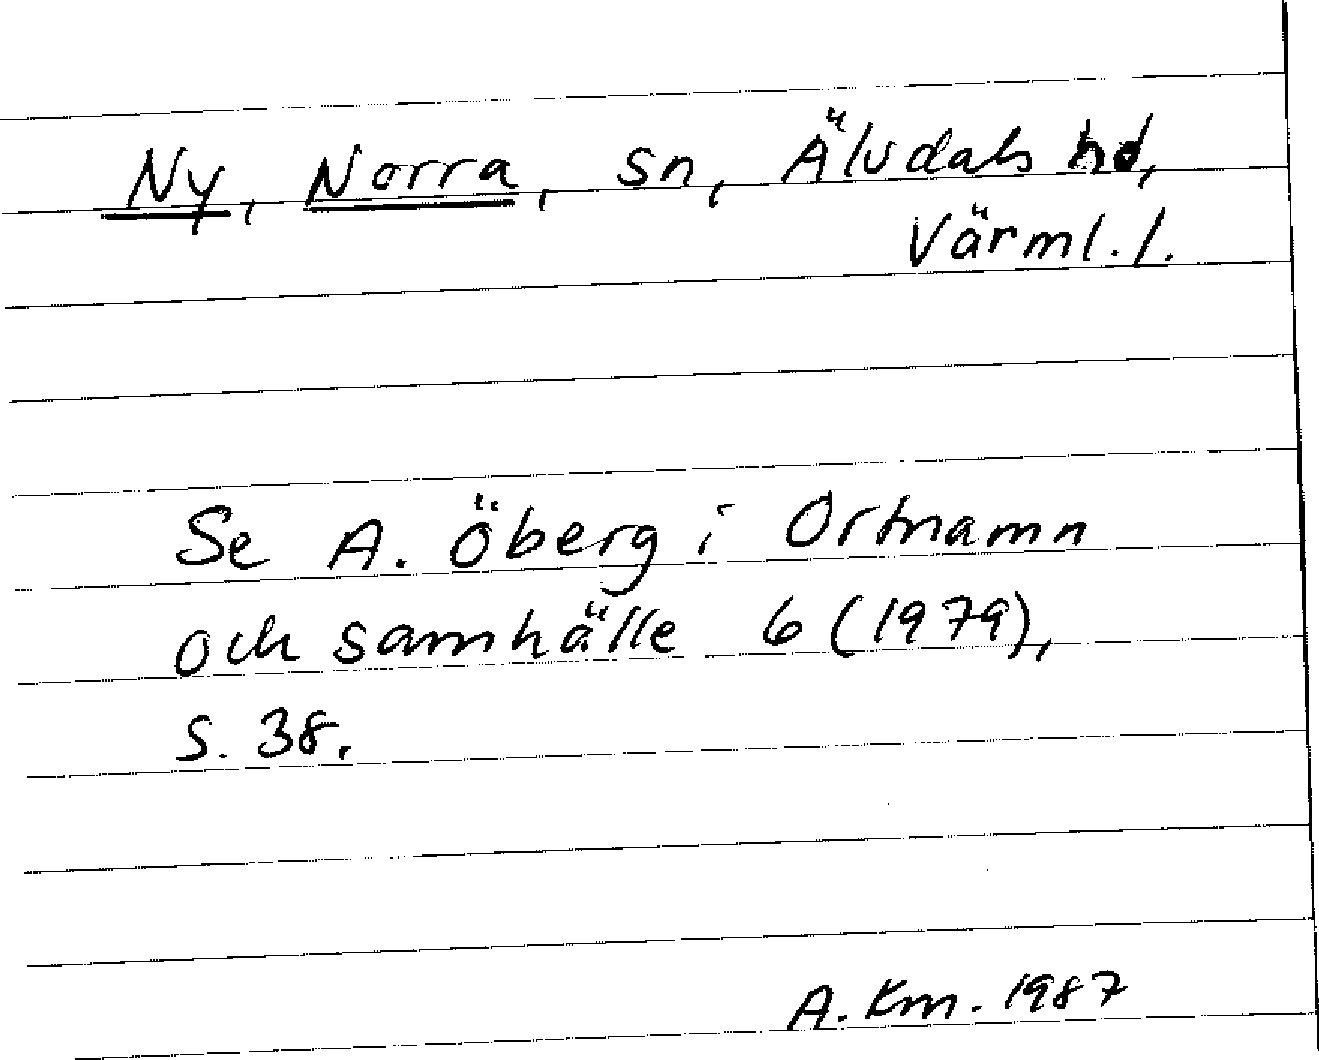 Ny, Norra, sn, Älvdals hd,
Värml. l.
Se A. Öberg i Ortnamn
och samhälle 6 (1979),
s. 38.
A. Km. 1987